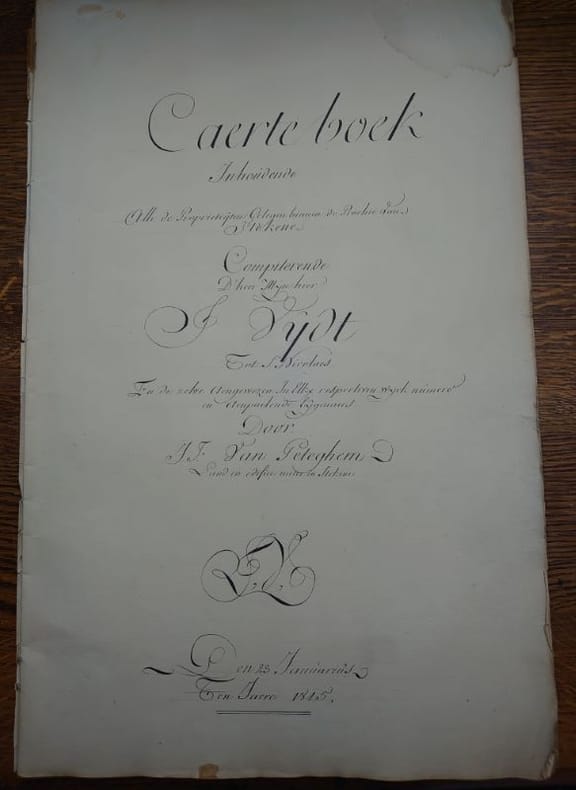 Caerte boek
Inhoudende
Alle de Proprieteÿten Gelegen binnen de Prochie van
Stekene
Competerende
D'heer Mijnheer
J Vÿdt
Tot S. Nicolaes
En de zelve Aengewezen In Elkx respectiven wyck numero
en Aenpaelende Eÿgenaers
Door
J.F. Van Peteghem
Land en edifie meter in Stekene
Den 23 Januarius
Ten Jaere 1815.